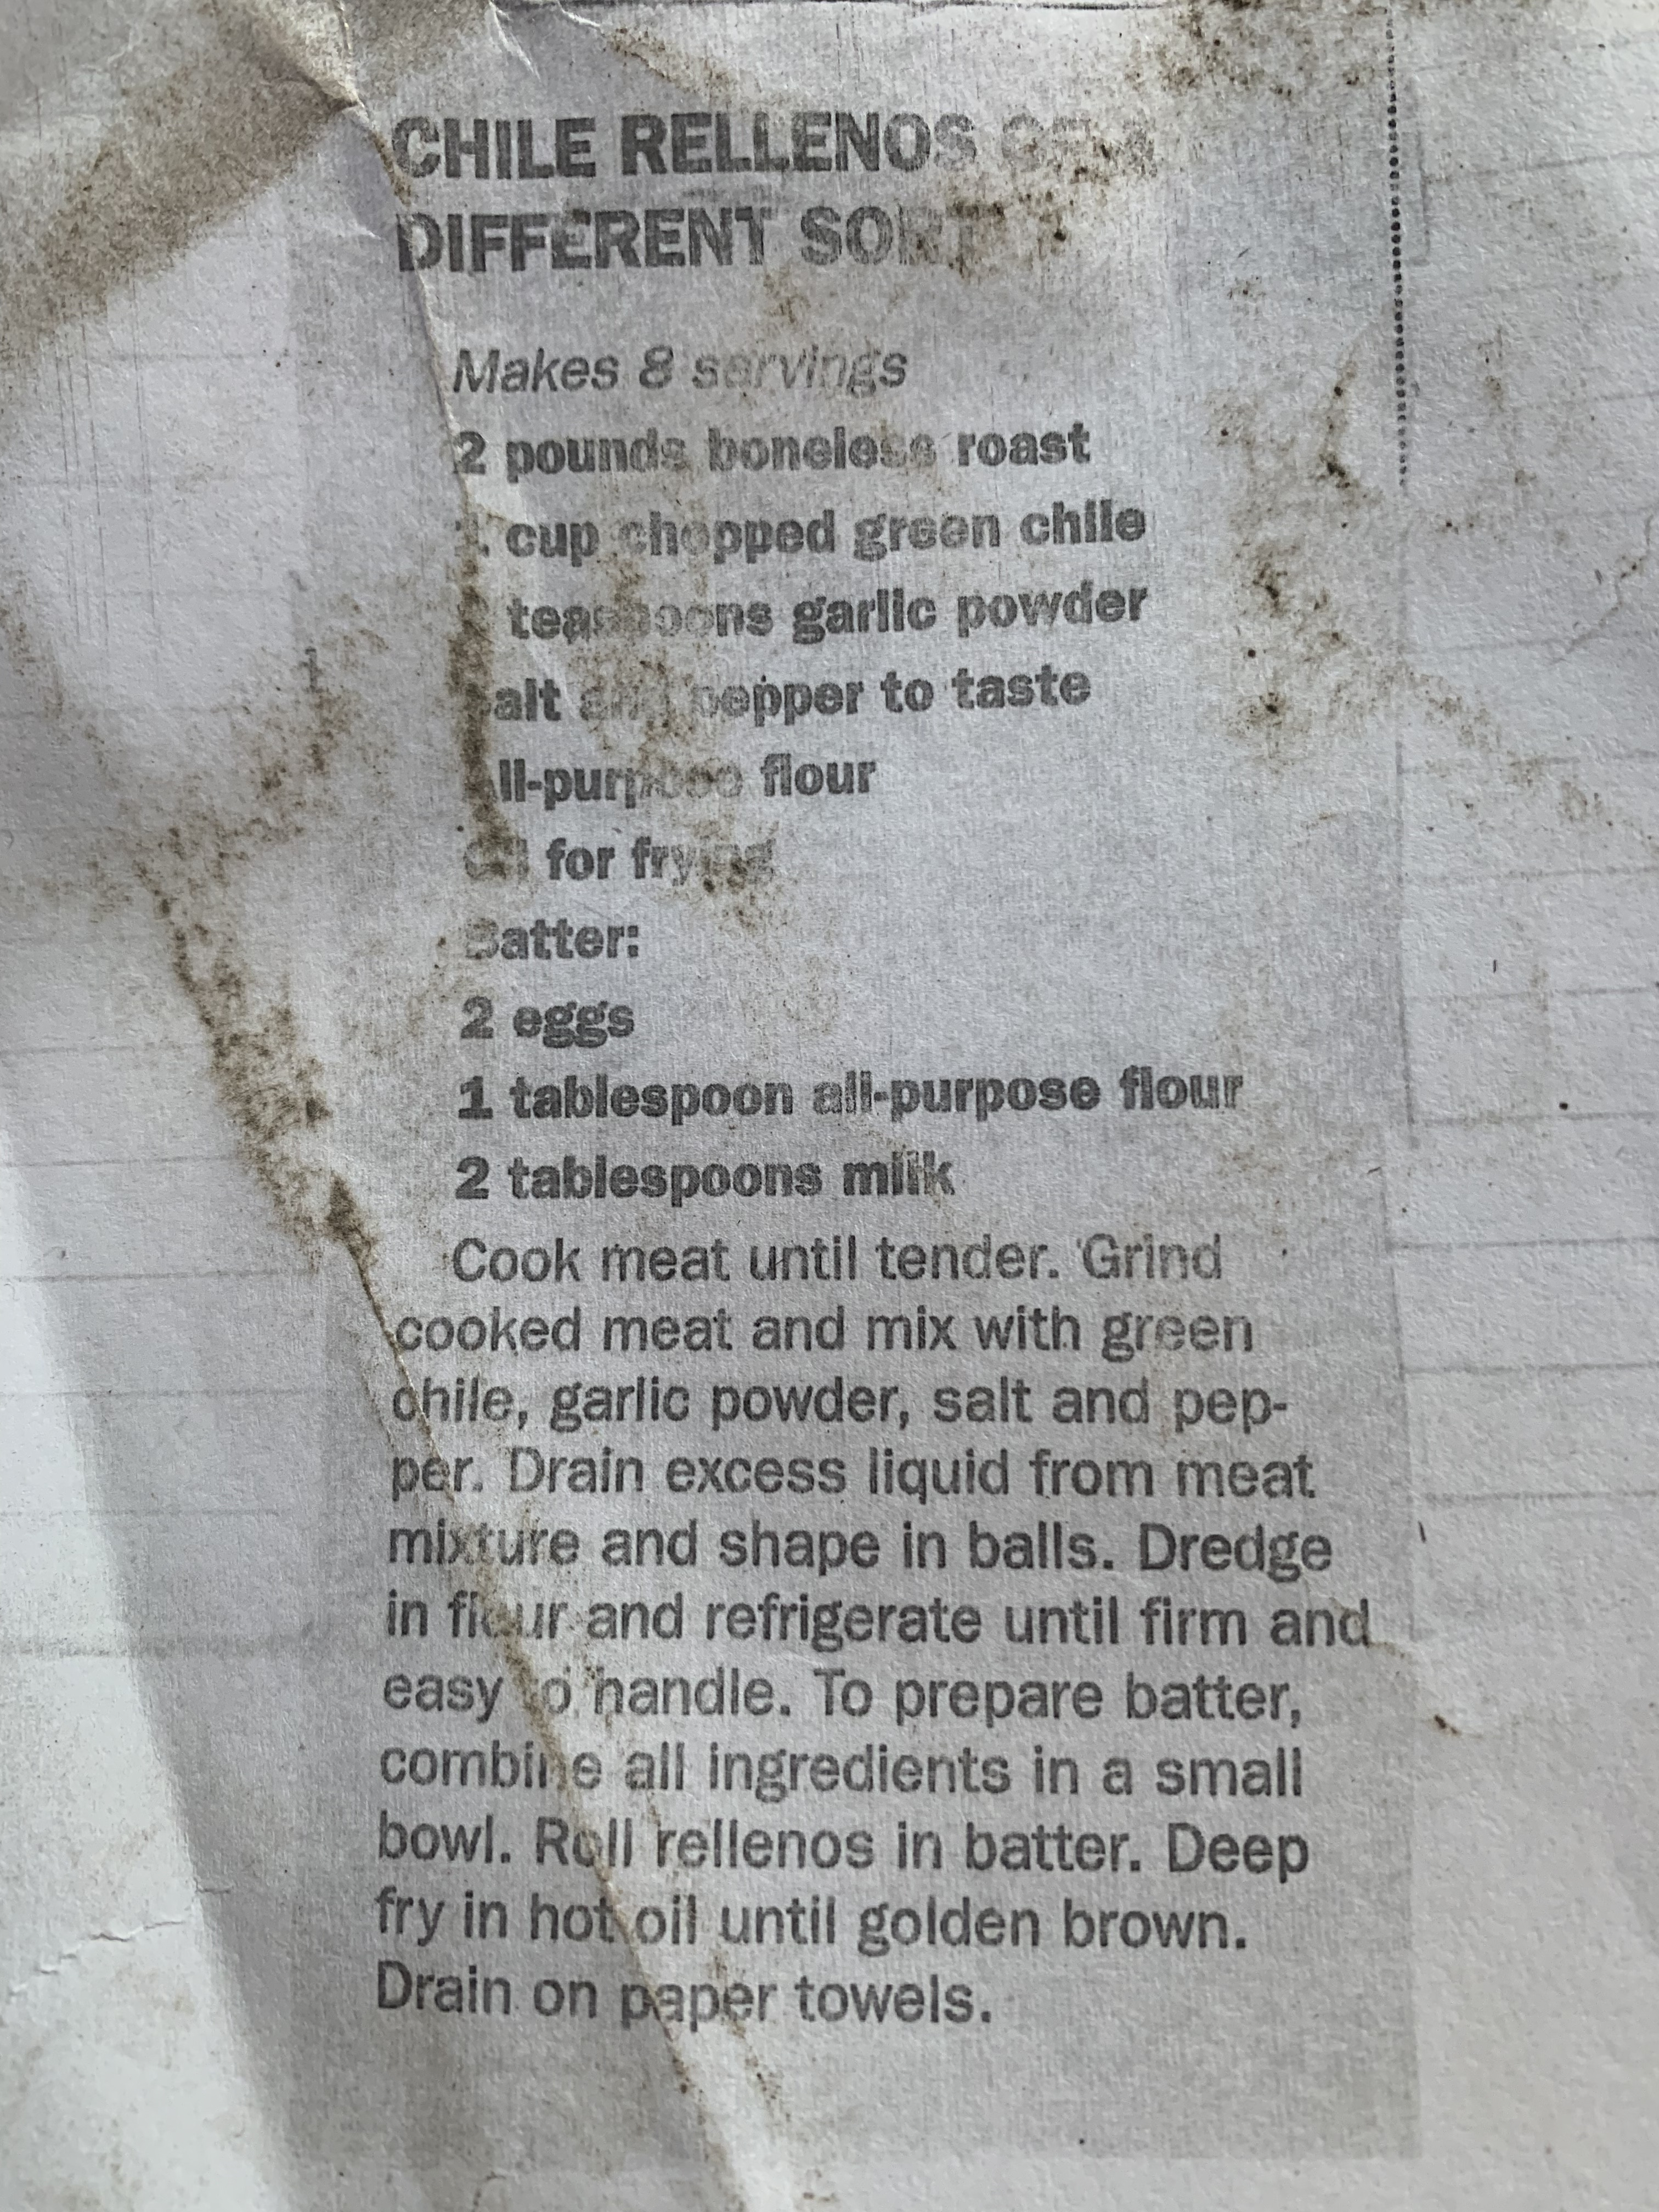 CHILE RELLENOS OF A
DIFFERENT SORT
Makes 8 servings
2 pounds boneless roast
1 cup chopped green chile
teaspoons garlic powder
Salt and pepper to taste
All-purpose flour
Oil for frying
Batter:
2 eggs
1 tablespoon all-purpose flour
2 tablespoons milk
Cook meat until tender. Grind
cooked meat and mix with green
chile, garlic powder, salt and pep-
per. Drain excess liquid from meat
mixture and shape in balls. Dredge
in flour and refrigerate until firm and
easy to handle. To prepare batter,
combine all ingredients in a small
bowl. Roll rellenos in batter. Deep
fry in hot oil until golden brown.
Drain on paper towels.